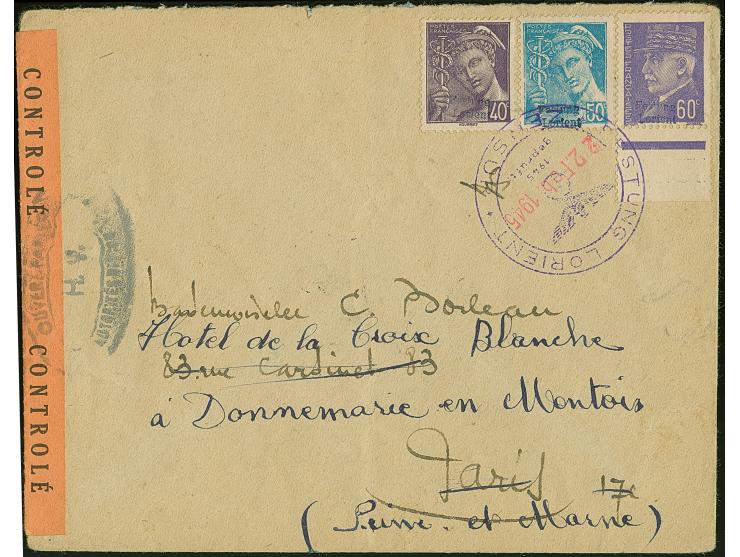 POSTES FRANÇAISES
40c
Festung
Lorient
POSTES FRANÇAISES
50c
Festung
Lorient
60c
Festung
Lorient
FESTUNG LORIENT
geprüft
1945
22 Feb 1945
CONTROLÉ
CONTROLÉ
Mademoiselle C. Boileau
Hotel de la Croix Blanche
83 rue Cardinet 83
à Donnemarie en Montois
Paris 17e
(Seine et Marne)